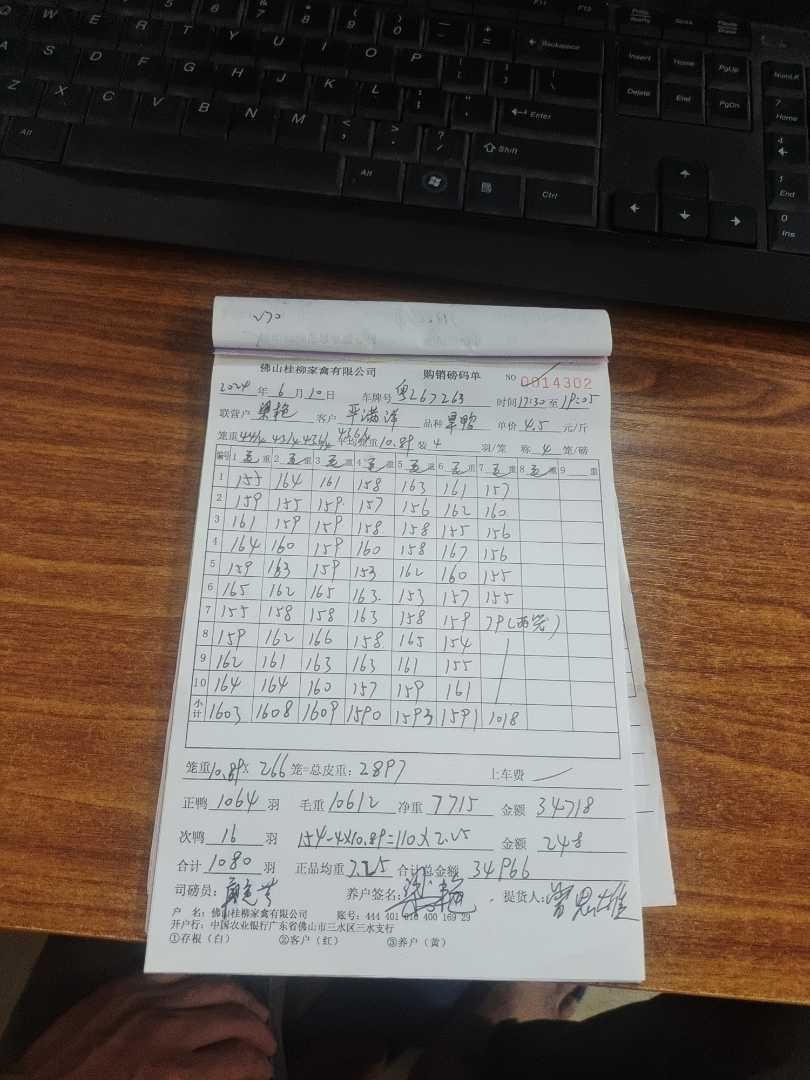 Q W E R T Y U I O P
A S D F G H J K L
Z X C V B N M
Backspace
Enter
Shift
Alt Alt Ctrl
Insert Home PgUp
Delete End PgDn
NumLk
7 Home
4
1 End
0 Ins
佛山桂柳家禽有限公司 购销磅码单 NO 0014302
2024年6月10日 车牌号 粤L67263 时间17:30至19:05
联营户 客户 品种 单价 4.5 元/斤
笼重 10.89 装 4 羽/笼 称 4 笼/磅
编号 1 重 2 重 3 重 4 重 5 重 6 重 7 重 8 重 9 重
1 155 164 161 158 163 161 157
2 159 155 159 157 156 162 160
3 161 159 159 158 158 155 156
4 164 160 159 160 158 167 156
5 159 163 159 153 162 160 155
6 165 162 165 163 153 157 155
7 155 158 158 163 158 159 79(两笼)
8 159 162 166 158 165 154
9 162 161 163 163 161 155
10 164 164 160 157 159 161
小计 1603 1608 1609 1590 1593 1591 1018
笼重10.89X 266笼=总皮重:2897 上车费
正鸭 1064 羽 毛重 10612 净重 7715 金额 34718
次鸭 16 羽 154-4X10.89=110X2.25 金额 248
合计 1080 羽 正品均重 7.25 合计总金额 34966
司磅员: 养户签名: 提货人:
户 名:佛山桂柳家禽有限公司 账号:444 401 010 400 169 29
开户行:中国农业银行广东省佛山市三水区三水支行
①存根(白) ②客户(红) ③养户(黄)